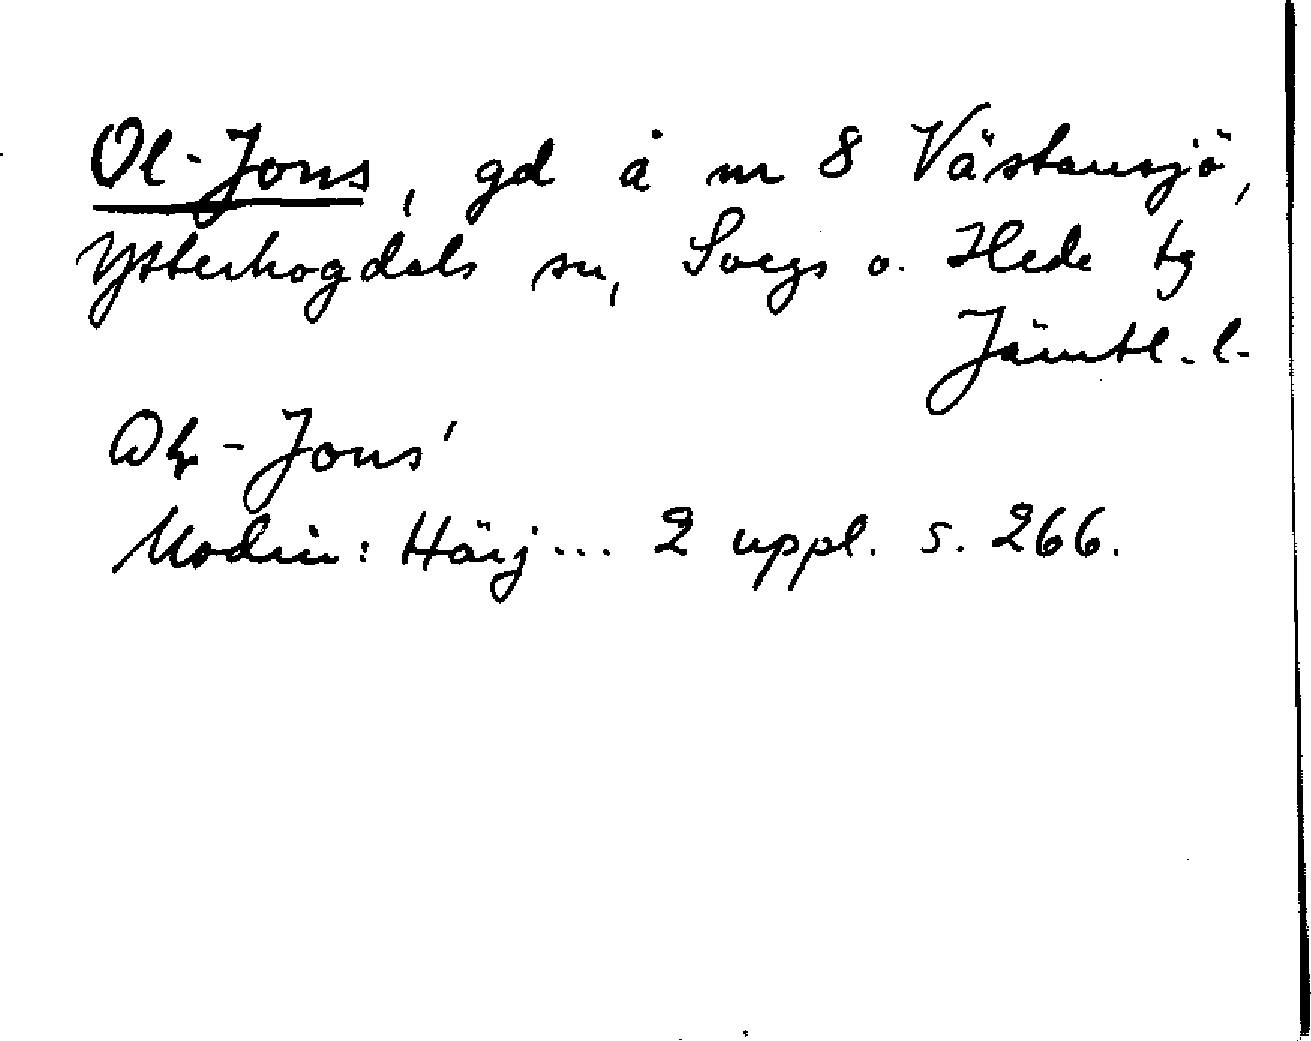 Ol-Jons, gd å nr 8 Västansjö,
Ytterhogdals sn, Svegs o. Hede tg
Jämtl. l.
-Jons'
Modin: Härj... 2 uppl. s. 266.